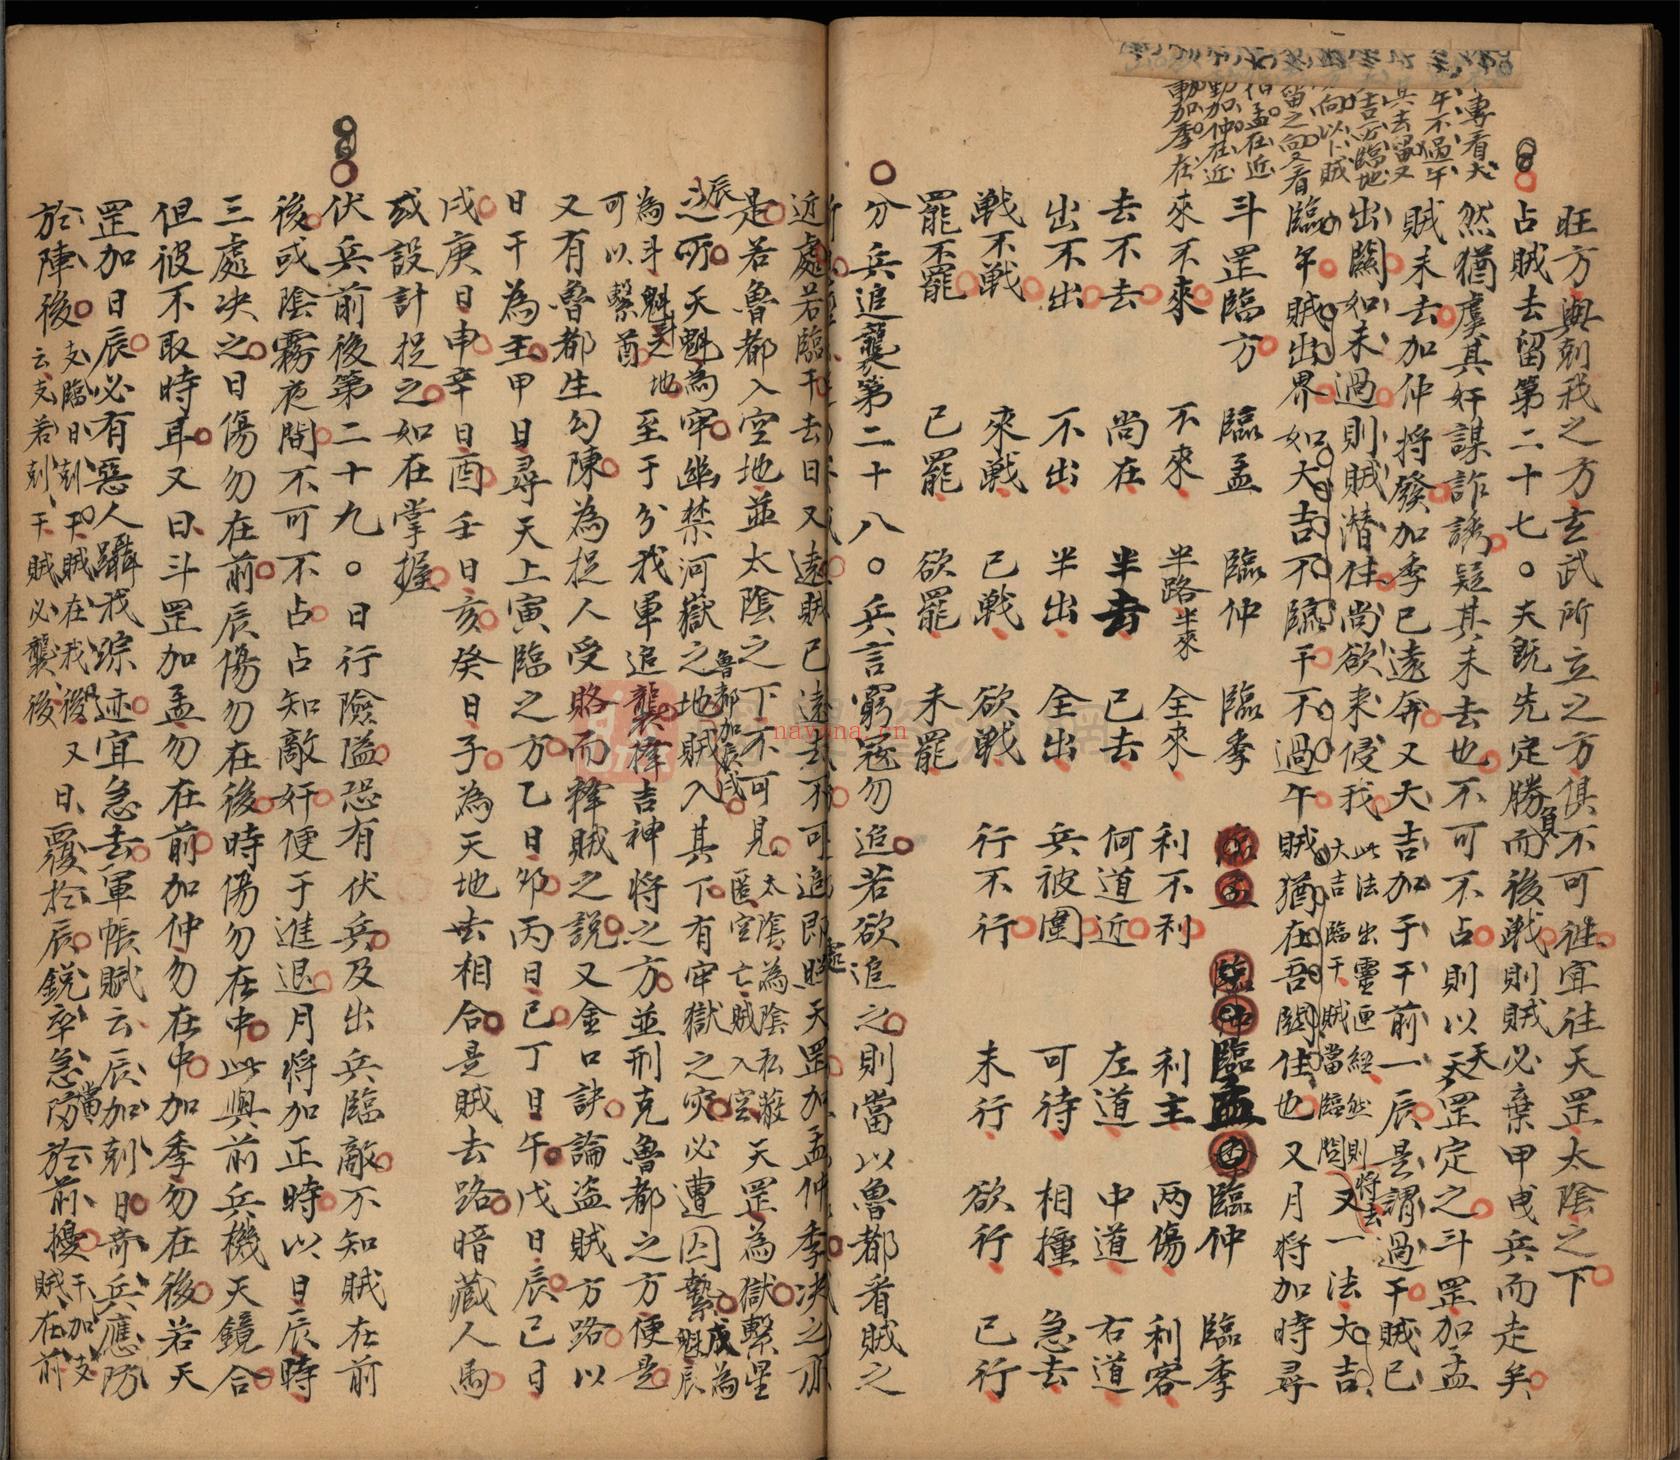 旺方與刻我之方玄武所立之方俱不可往宜往天罡太陰之下
占賊去留第二十七。夫既先定勝負而後戰則賊必棄甲曳兵而走矣
然猶慮其奸謀詐誘疑其未去也不可不占則以天罡定之斗罡加孟
賊未去加仲將發加季已遠奔又大吉加于干前一辰是謂過干賊已
出關如未過則賊潛住尚欲来侵我此法出靈匣經然則
大吉臨干賊當臨關將去又一法大吉
臨午賊出界如大吉不臨干不過午賊猶在吾關住也又月將加時尋
斗罡臨方 臨孟 臨仲 臨季 臨孟 臨仲 臨季
來不來 不來 半路半來 全來 利不利 利主 两傷 利客
去不去 尚在 半去 已去 何道近 左道 中道 右道
出不出 不出 半出 全出 兵被圍 可待 相撞 急去
戰不戰 來戰 已戰 欲戰 行不行 未行 欲行 已行
罷不罷 已罷 欲罷 未罷
分兵追襲第二十八。兵言窮寇勿追若欲追之則當以魯都看賊之
近處若臨干去日又遠賊已遠去不可追即處照天罡加孟仲季决之亦
是若魯都入空地並太陰之下不可見太陰為陰私蔽
匿空亡賊入空天罡為獄繫星
辰之所天魁為牢幽禁河獄之地魯都加辰戌賊入其下有牢獄之灾必遭囚縶戌為
魁辰
為斗魁斗之地
可以繫酋至于分我軍追襲擇吉神將之方並刑克魯都之方便是
又有魯都生勾陳為捉人受賂而釋賊之說又金口訣論盜賊方路以
日干為主甲日尋天上寅臨之方乙日卯丙日巳丁日午戊日辰己日
戌庚日申辛日酉壬日亥癸日子為天地去相合是賊去路暗藏人馬
或設計捉之如在掌握
伏兵前後第二十九。日行險隘恐有伏兵及出兵臨敵不知賊在前
後或陰霧夜間不可不占占知敵奸便于進退月將加正時以日辰時
三處决之日傷勿在前辰傷勿在後時傷勿在中此與前兵機天鏡合
但彼不取時耳又曰斗罡加孟勿在前加仲勿在中加季勿在後若天
罡加日辰必有惡人躡我踪迹宜急去軍帳賦云辰加刻日奇兵應防
於陣後支臨日刻干賊在我後
云支若刻干賊必襲後又曰覆於辰銳卒急當防於前擾干加支
賊在前